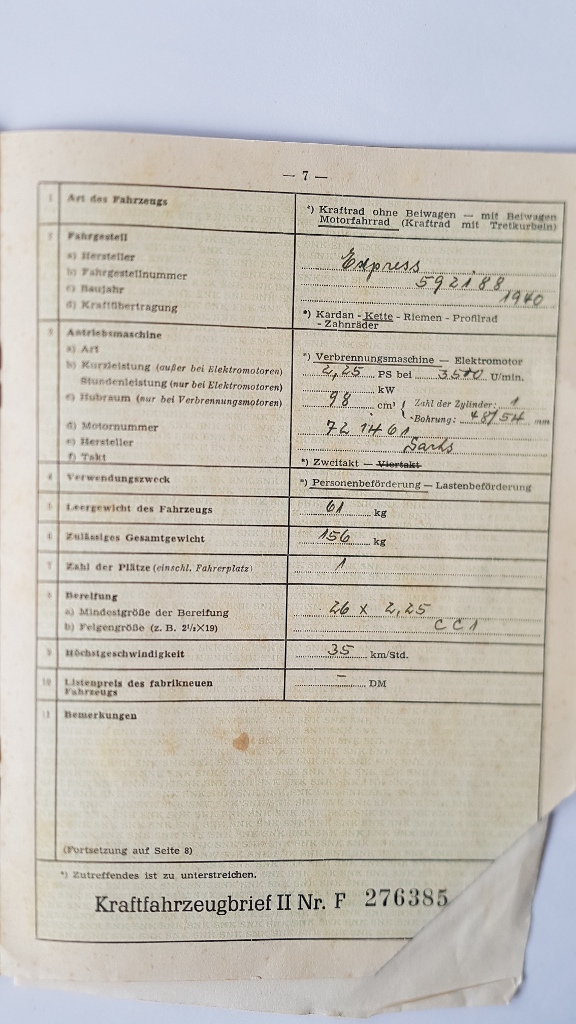 — 7 —
1 Art des Fahrzeugs
*) Kraftrad ohne Beiwagen — mit Beiwagen
Motorfahrrad (Kraftrad mit Tretkurbeln)
2 Fahrgestell
a) Hersteller Express
b) Fahrgestellnummer 592188
c) Baujahr 1940
d) Kraftübertragung *) Kardan - Kette - Riemen - Profilrad
- Zahnräder
3 Antriebsmaschine
a) Art *) Verbrennungsmaschine — Elektromotor
b) Kurzleistung (außer bei Elektromotoren) 2,25 PS bei 3500 U/min.
Stundenleistung (nur bei Elektromotoren) kW
c) Hubraum (nur bei Verbrennungsmotoren) 98 cm³ { Zahl der Zylinder: 1
Bohrung: 48/54 mm
d) Motornummer 721461
e) Hersteller Sachs
f) Takt *) Zweitakt — Viertakt
4 Verwendungszweck *) Personenbeförderung — Lastenbeförderung
5 Leergewicht des Fahrzeugs 61 kg
6 Zulässiges Gesamtgewicht 156 kg
7 Zahl der Plätze (einschl. Fahrerplatz) 1
8 Bereifung
a) Mindestgröße der Bereifung 26 x 2,25
b) Felgengröße (z. B. 2½×19) CC1
9 Höchstgeschwindigkeit 35 km/Std.
10 Listenpreis des fabrikneuen – DM
Fahrzeugs
11 Bemerkungen
(Fortsetzung auf Seite 8)
*) Zutreffendes ist zu unterstreichen.
Kraftfahrzeugbrief II Nr. F 276385